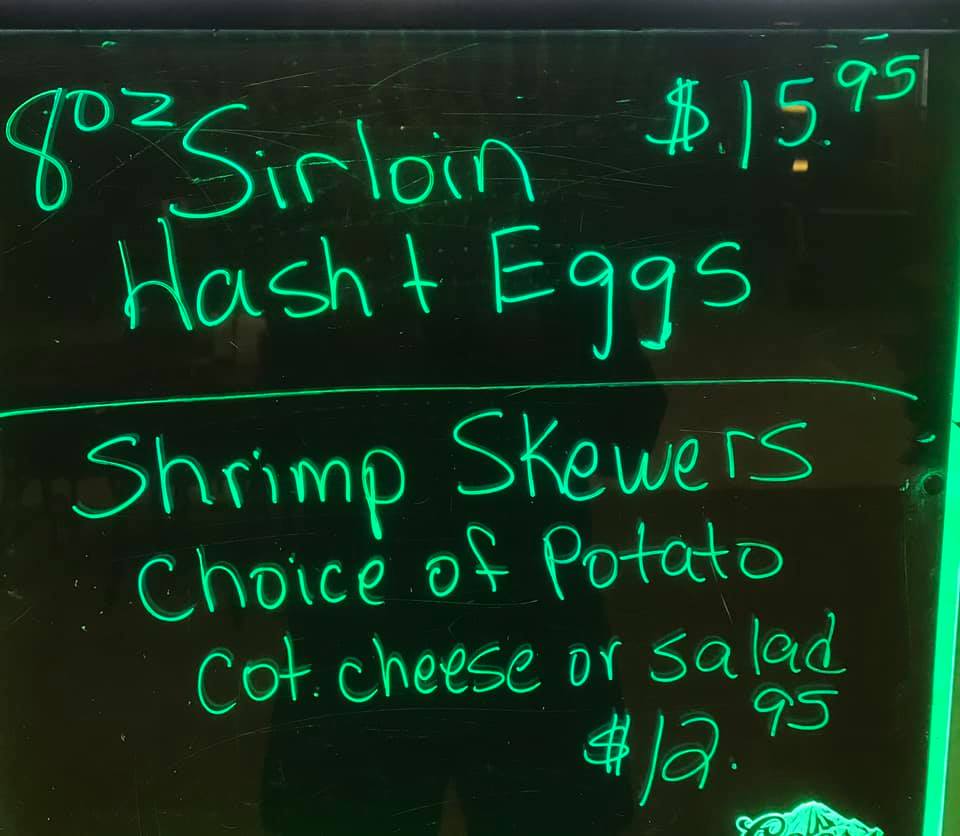 8oz Sirloin $.15.95
Hash + Eggs
Shrimp Skewers
Choice of Potato
Cot. cheese or salad
$12.95